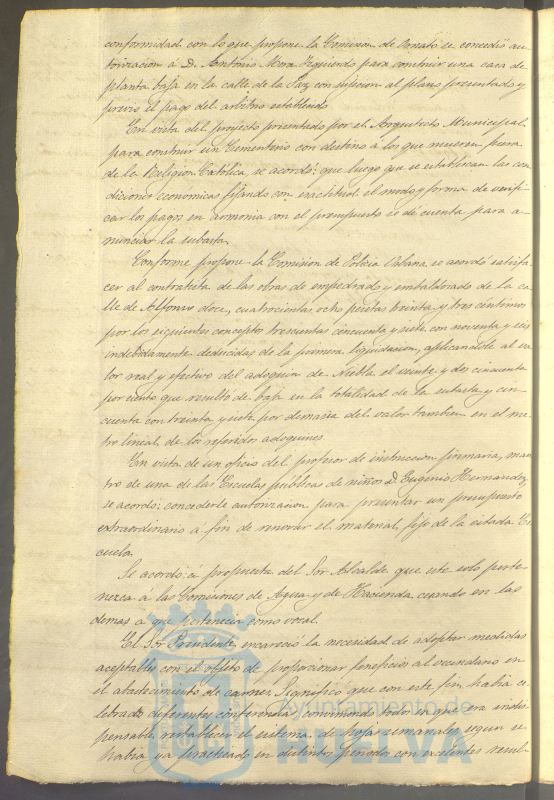 conformidad con lo que propone la Comision de Ornato se concedió au
torizacion á D. Antonio Mora Izquierdo para construir una casa de
planta baja en la calle de la Paz con sujecion al plano presentado y
previo el pago del arbitrio establecido.
En vista del proyecto presentado por el Arquitecto Municipal
para construir un Cementerio con destino a los que mueren fuera
de la Religion Católica, se acordó: que luego que se establezcan las con
diciones economicas fijando con exactitud el modo y forma de verifi
car los pagos en armonia con el presupuesto se dé cuenta para a-
nunciar la subasta.
Conforme propone la Comision de Policia Urbana se acordó satisfa
cer al contratista de las obras de empedrado y embaldosado de la ca
lle de Alfonso doce, cuatrocientas ocho pesetas treinta y tres centimos
por los siguientes conceptos trescientas cincuenta y siete con noventa y seis
indebidamente deducidas de la primera liquidacion, aplicandole al va
lor real y efectivo del adoquin de Niebla el veinte y dos cincuenta
por ciento que resultó de baja en la totalidad de la subasta y cin-
cuenta con treinta y siete por demasia del valor tambien en el me
tro lineal de los referidos adoquines.
En vista de un oficio del profesor de instruccion primaria, maes
tro de una de las Escuelas publicas de niños D. Eugenio Hernandez,
se acordó: concederle autorizacion para presentar un presupuesto
extraordinario á fin de renovar el material fijo de la citada Es
cuela.
Se acordó: á propuesta del Sor Alcalde que este solo perte-
nezca á las Comisiones de Agua y de Hacienda, cuando en las
demas á que pertenecia como vocal.
El Sor Presidente, encareció la necesidad de adoptar medidas
aceptables con el objeto de proporcionar beneficios al vecindario en
el abastecimiento de carnes. Significó que con este fin habia ce
lebrado diferentes conferencias, conviniendo todos en que era indis
pensable restablecer el sistema de hojas semanales segun se
habia ya practicado en distintos periodos con excelentes resul-
Ayuntamiento de